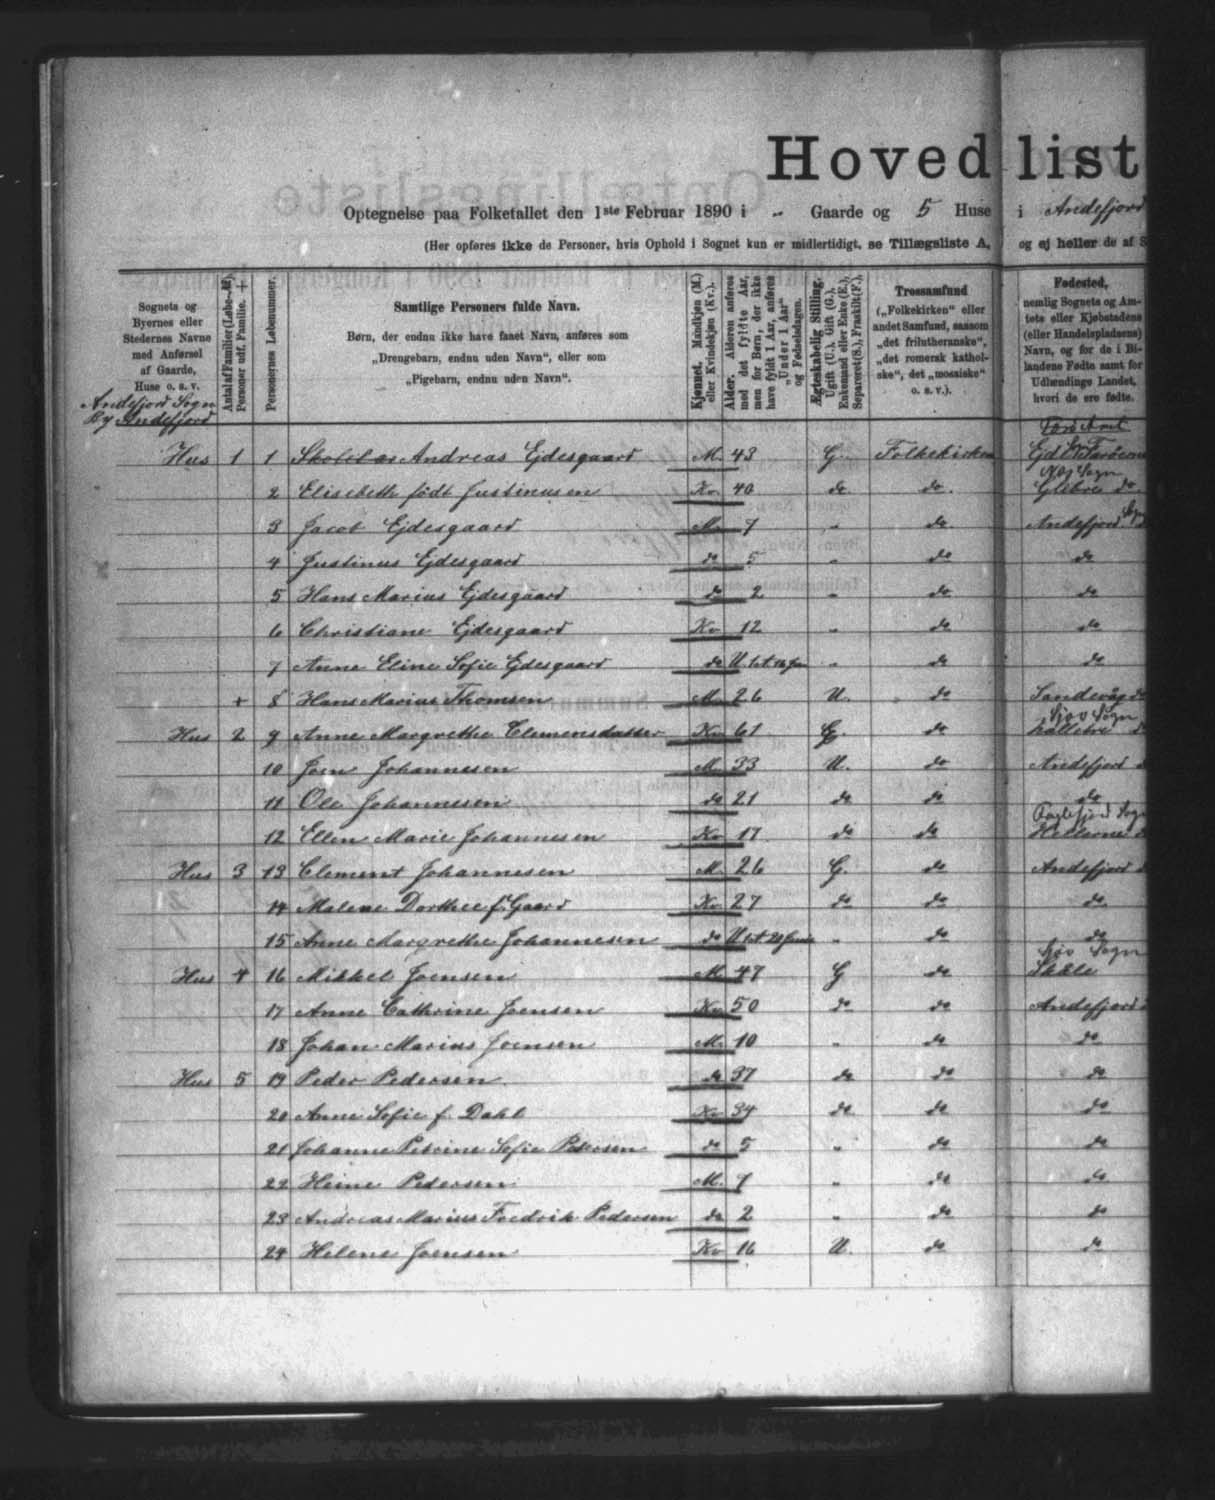 Hovedlist
Optegnelse paa Folketallet den 1ste Februar 1890 i „ Gaarde og 5 Huse i Andefjord
(Her opføres ikke de Personer, hvis Ophold i Sognet kun er midlertidigt, se Tillægsliste A, og ej heller de af S
Sognets og
Byernes eller
Stedernes Navne
med Anførsel
af Gaarde,
Huse o. s. v.
Andefjord Sogn
By Andefjord
Personernes Løbenummer.
Samtlige Personers fulde Navn.
Børn, der endnu ikke have faaet Navn, anføres som
„Drengebarn, endnu uden Navn“, eller som
„Pigebarn, endnu uden Navn“.
Kjønnet. Mandkjøn (M.)
eller Kvindekjøn (Kv.).
Alder. Alderen anføres
med det fyldte Aar,
men for Børn, der ikke
have fyldt 1 Aar, anføres
„Under 1 Aar“
og Fødselsdagen.
Ægteskabelig Stilling.
Ugift (U.), Gift (G.),
Enkemand eller Enke (E.),
Separeret (S.), Fraskilt (F.).
Trossamfund
(„Folkekirken“ eller
andet Samfund, saasom
„det frilutheranske“,
„det romersk kathol-
ske“, det „mosaiske“
o. s. v.).
Fødested,
nemlig Sognets og Am-
tets eller Kjøbstadens
(eller Handelspladsens)
Navn, og for de i Bi-
landene Fødte samt for
Udlændinge Landet,
hvori de ere fødte.
Hus 1 1 Andreas Ejdesgaard M. 43 G. Folkekirken
2 Elisebeth født Justinusen Kv. 40 do do.
3 Jacob Ejdesgaard M. 7 „ do Andefjord Sogn
4 Justinus Ejdesgaard do 5 „ do do
5 Hans Marius Ejdesgaard do 2 „ do do
6 Christiane Ejdesgaard Kv 12 „ do do
7 Anne Eline Sofie Ejdesgaard do „ do do
+ 8 Hans Marius Thomsen M. 26 U. do Sandevåg do
Sjov Sogn
Hus 2 9 Anne Margrethe Clemensdatter Kv 61 do
10 Joen Johannesen M. 33 U. do Andefjord
11 Ole Johannesen do 21 do do do
12 Ellen Marie Johannesen Kv 17 do do
Hus 3 13 Clement Johannesen M. 26 G. do Andefjord
14 Malene Dorthee f. Gaard Kv 27 do do do
15 Anne Margrethe Johannesen do „ do do
Sjov Sogn
Hus 4 16 Mikkel Joensen M. 47 G do
17 Anne Cathrine Joensen Kv 50 do do Andefjord
18 Johan Marius Joensen M. 10 „ do do
Hus 5 19 Peder Pedersen do 37 do do do
20 Anne Sofie f. Dahl Kv 34 do do do
21 Johanne Petrine Sofie Pedersen do 5 „ do do
22 Heine Pedersen M. 7 „ do do
23 Andreas Marius Fredrik Pedersen do 2 „ do do
24 Helene Joensen Kv 16 U. do do